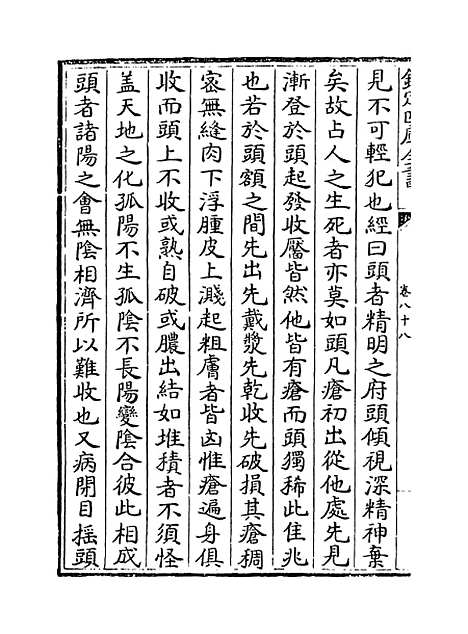 欽定四庫全書
卷八十八
見不可輕犯也經曰頭者精明之府頭傾視深精神棄
矣故占人之生死者亦莫如頭凡瘡初出從他處先見
漸登於頭起發收靨皆然他皆有瘡而頭獨稀此佳兆
也若於頭額之間先出先戴漿先乾收先破損其瘡稠
宻無縫肉下浮腫皮上濺起粗膚者皆凶惟瘡遍身俱
收而頭上不收或熟自破或膿出結如堆積者不須怪
盖天地之化孤陽不生孤陰不長陽變陰合彼此相成
頭者諸陽之會無陰相濟所以難收也又病閉目摇頭